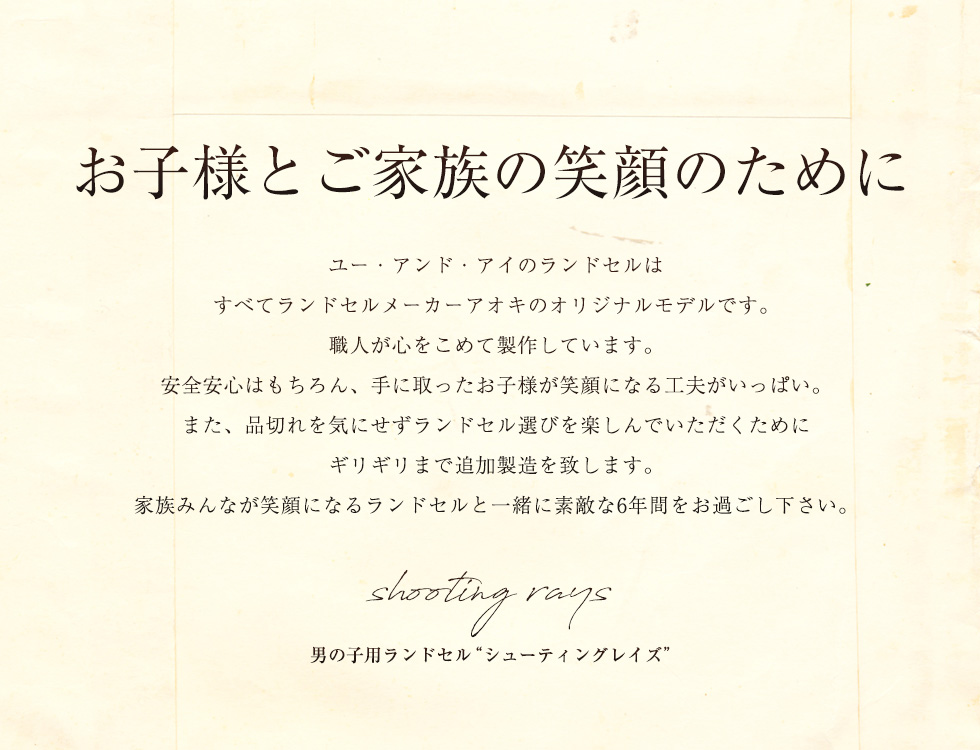 お子様とご家族の笑顔のために
ユー・アンド・アイのランドセルは
すべてランドセルメーカーアオキのオリジナルモデルです。
職人が心をこめて製作しています。
安全安心はもちろん、手に取ったお子様が笑顔になる工夫がいっぱい。
また、品切れを気にせずランドセル選びを楽しんでいただくために
ギリギリまで追加製造を致します。
家族みんなが笑顔になるランドセルと一緒に素敵な6年間をお過ごし下さい。
shooting rays
男の子用ランドセル“シューティングレイズ”